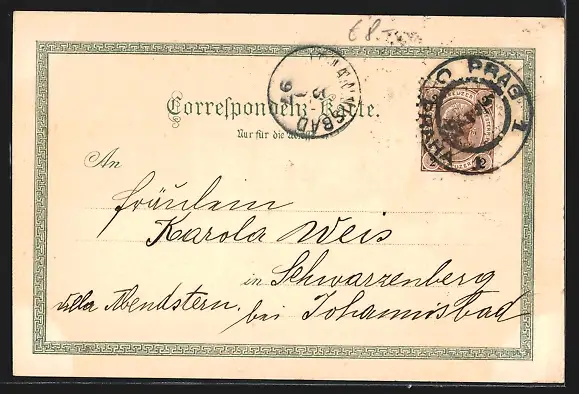 €8.-
Correspondenz-Karte.
Nur für die Adresse
JOHANNISBAD
PRAG 1 PRAHA
An
Fräulein
Karola Weis
in Schwarzenberg
villa Abendstern. bei Johannisbad